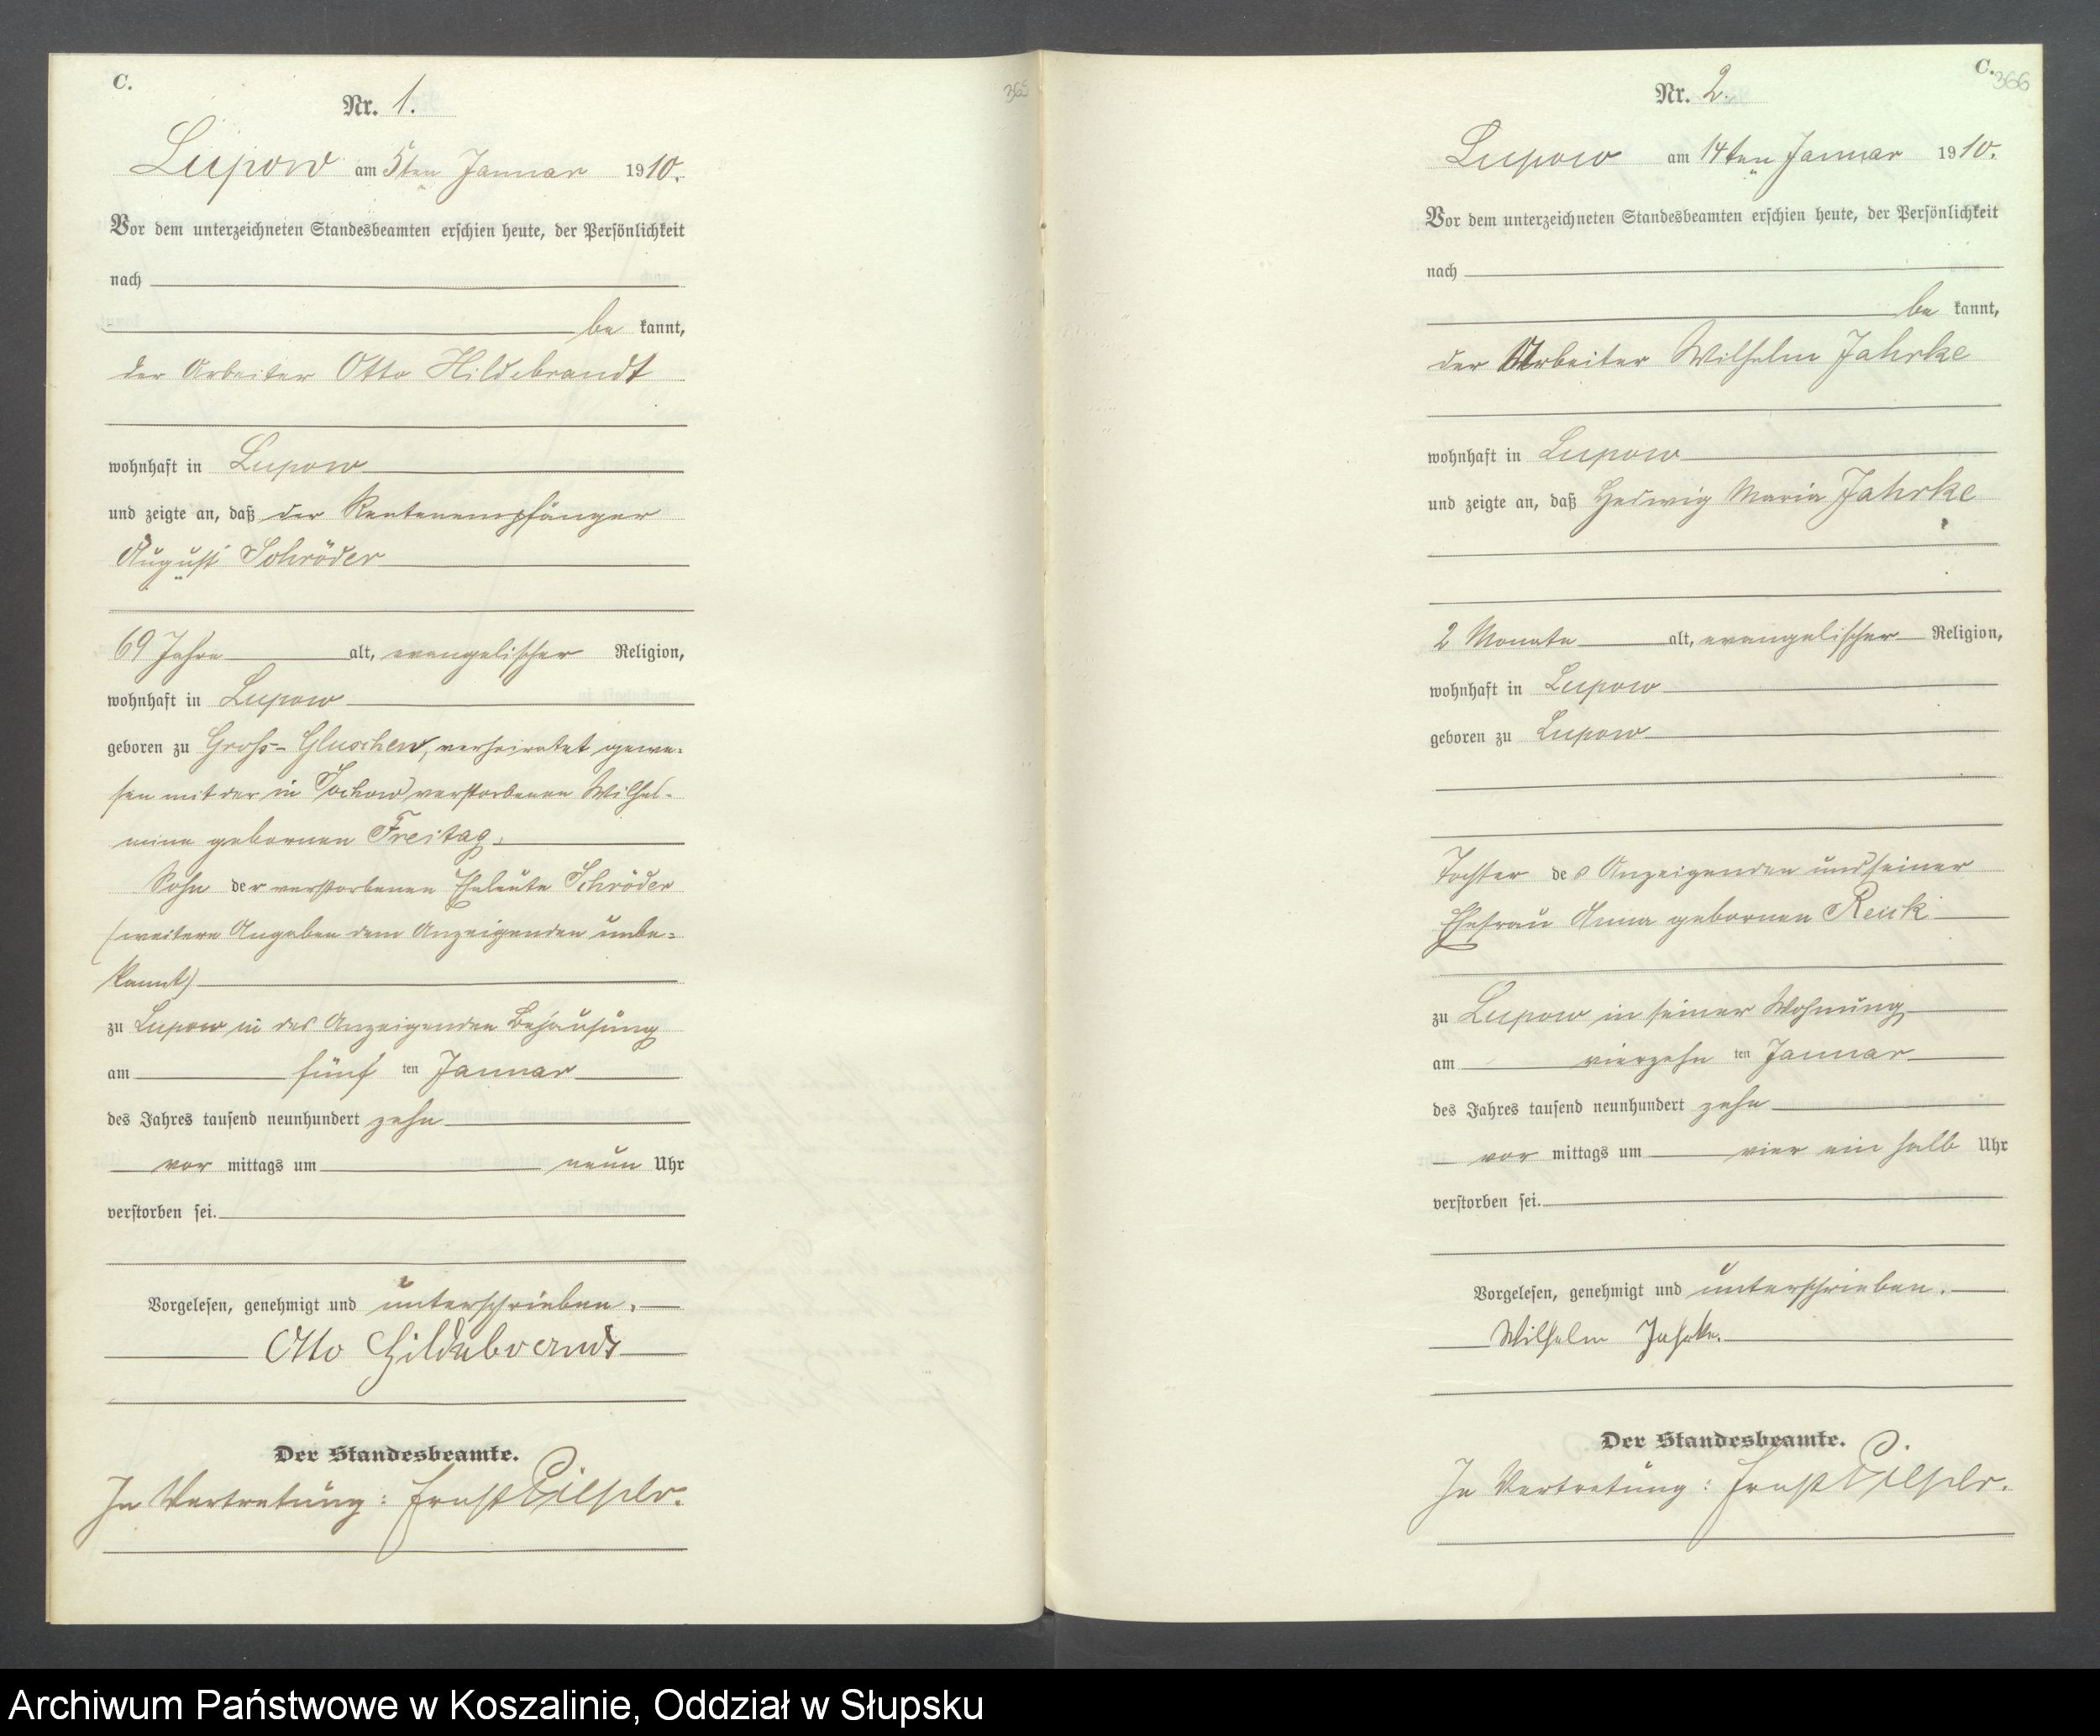 C.
365
Nr. 1.
Lupow am 5ten Januar 1910.
Vor dem unterzeichneten Standesbeamten erschien heute, der Persönlichkeit
nach
be kannt,
der Arbeiter Otto Hildebrandt
wohnhaft in Lupow
und zeigte an, daß der Rentenempfänger
August Schröder
69 Jahre alt, evangelischer Religion,
wohnhaft in Lupow
geboren zu Groß-Gluschen, verheiratet gewe-
sen mit der in verstorbenen Wilhel-
mine gebornen Freitag,
Sohn der verstorbenen Eheleute Schröder
(weitere Angaben dem Anzeigenden unbe-
kannt)
zu Lupow in des Anzeigenden Behausung
am fünf ten Januar
des Jahres tausend neunhundert zehn
vor mittags um neun Uhr
verstorben sei.
Vorgelesen, genehmigt und unterschrieben.
Otto Hildebrandt
Der Standesbeamte.
In Vertretung: Ernst
C.
366
Nr. 2.
Lupow am 14ten Januar 1910.
Vor dem unterzeichneten Standesbeamten erschien heute, der Persönlichkeit
nach
be kannt,
der Arbeiter Wilhelm Jahrke
wohnhaft in Lupow
und zeigte an, daß Hedwig Maria Jahrke
2 Monate alt, evangelischer Religion,
wohnhaft in Lupow
geboren zu Lupow
Tochter des Anzeigenden und seiner
Ehefrau Anna gebornen
zu Lupow in seiner Wohnung
am vierzehn ten Januar
des Jahres tausend neunhundert zehn
vor mittags um vier ein halb Uhr
verstorben sei.
Vorgelesen, genehmigt und unterschrieben.
Wilhelm Jahrke.
Der Standesbeamte.
In Vertretung: Ernst
Archiwum Państwowe w Koszalinie, Oddział w Słupsku